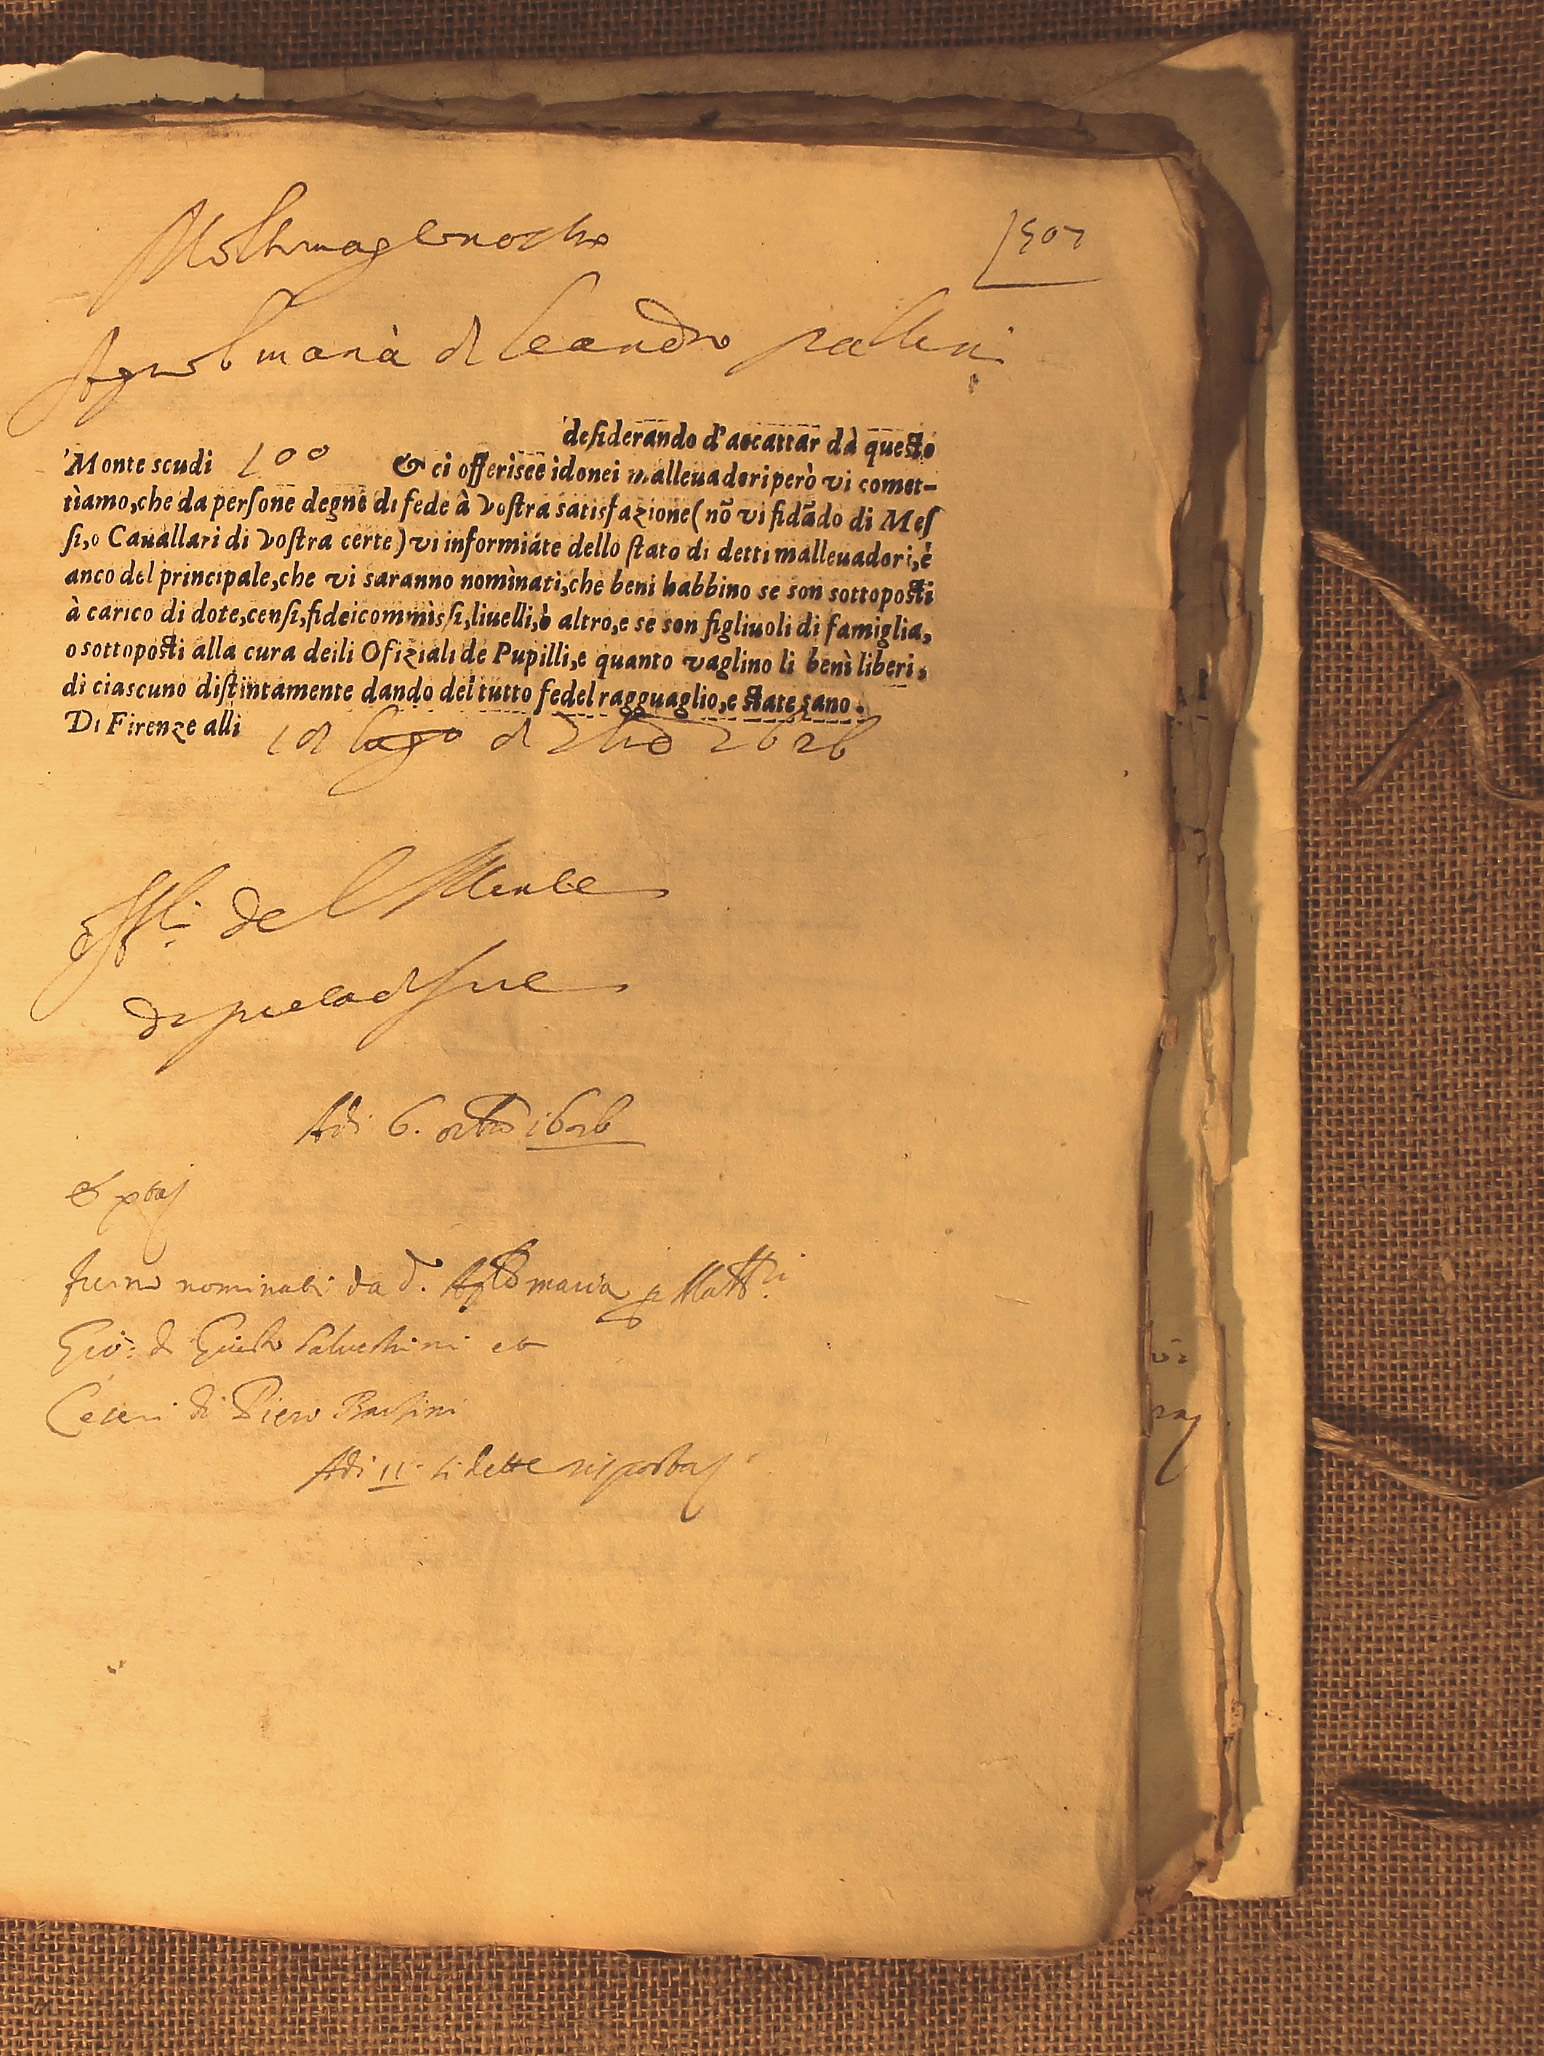 Molto mag.co nostro
507
Agnol maria di leandro pallini
desiderando d'accattar dà questo
Monte scudi 100 & ci offerisce idonei malleuadori però vi comet-
tiamo,che da persone degne di fede à vostra satisfazione(nō vi fidādo di Mes
si,o Cauallari di vostra corte)vi informiate dello stato di detti malleuadori,è
anco del principale,che vi saranno nominati,che beni habbino se son sottoposti
à carico di dote,censi,fideicommissi,liuelli,ò altro,e se son figliuoli di famiglia,
o sottoposti alla cura delli Ofiziali de Pupilli,e quanto vaglino li beni liberi,
di ciascuno distintamente dando del tutto fedel ragguaglio,e state sano.
Di Firenze alli
del Monte
di pieta di
Adi 6. ottb 1626
&
furno nominati da d. Ag.lo maria p Matt.ri
Gio: di Giusto Saluestrini et
Ceseri di Piero Bassini
Adi 11. li dette